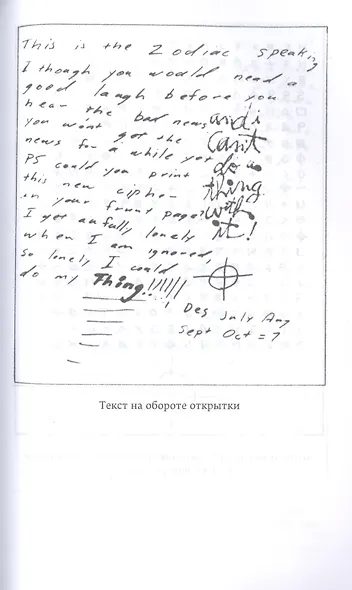 This is the Zodiac speaking
I though you woold need a
good laugh before you
hear the bad news
you won't get the
news for a while yet
PS could you print
this new cipher
in your frunt page?
I get awfully lonely
when I am ignored,
so lonely I could
do my Thing!!!!!!
and i
Can't
do a
thing
with
it!
Des July Aug
Sept Oct = 7
Текст на обороте открытки